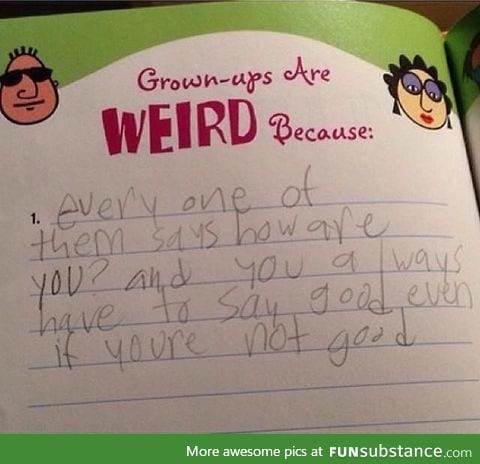 Grown-ups Are
WEIRD Because:
1. every one of
them says how are
you? and you always
have to say good even
if youre not good
More awesome pics at FUNsubstance.com